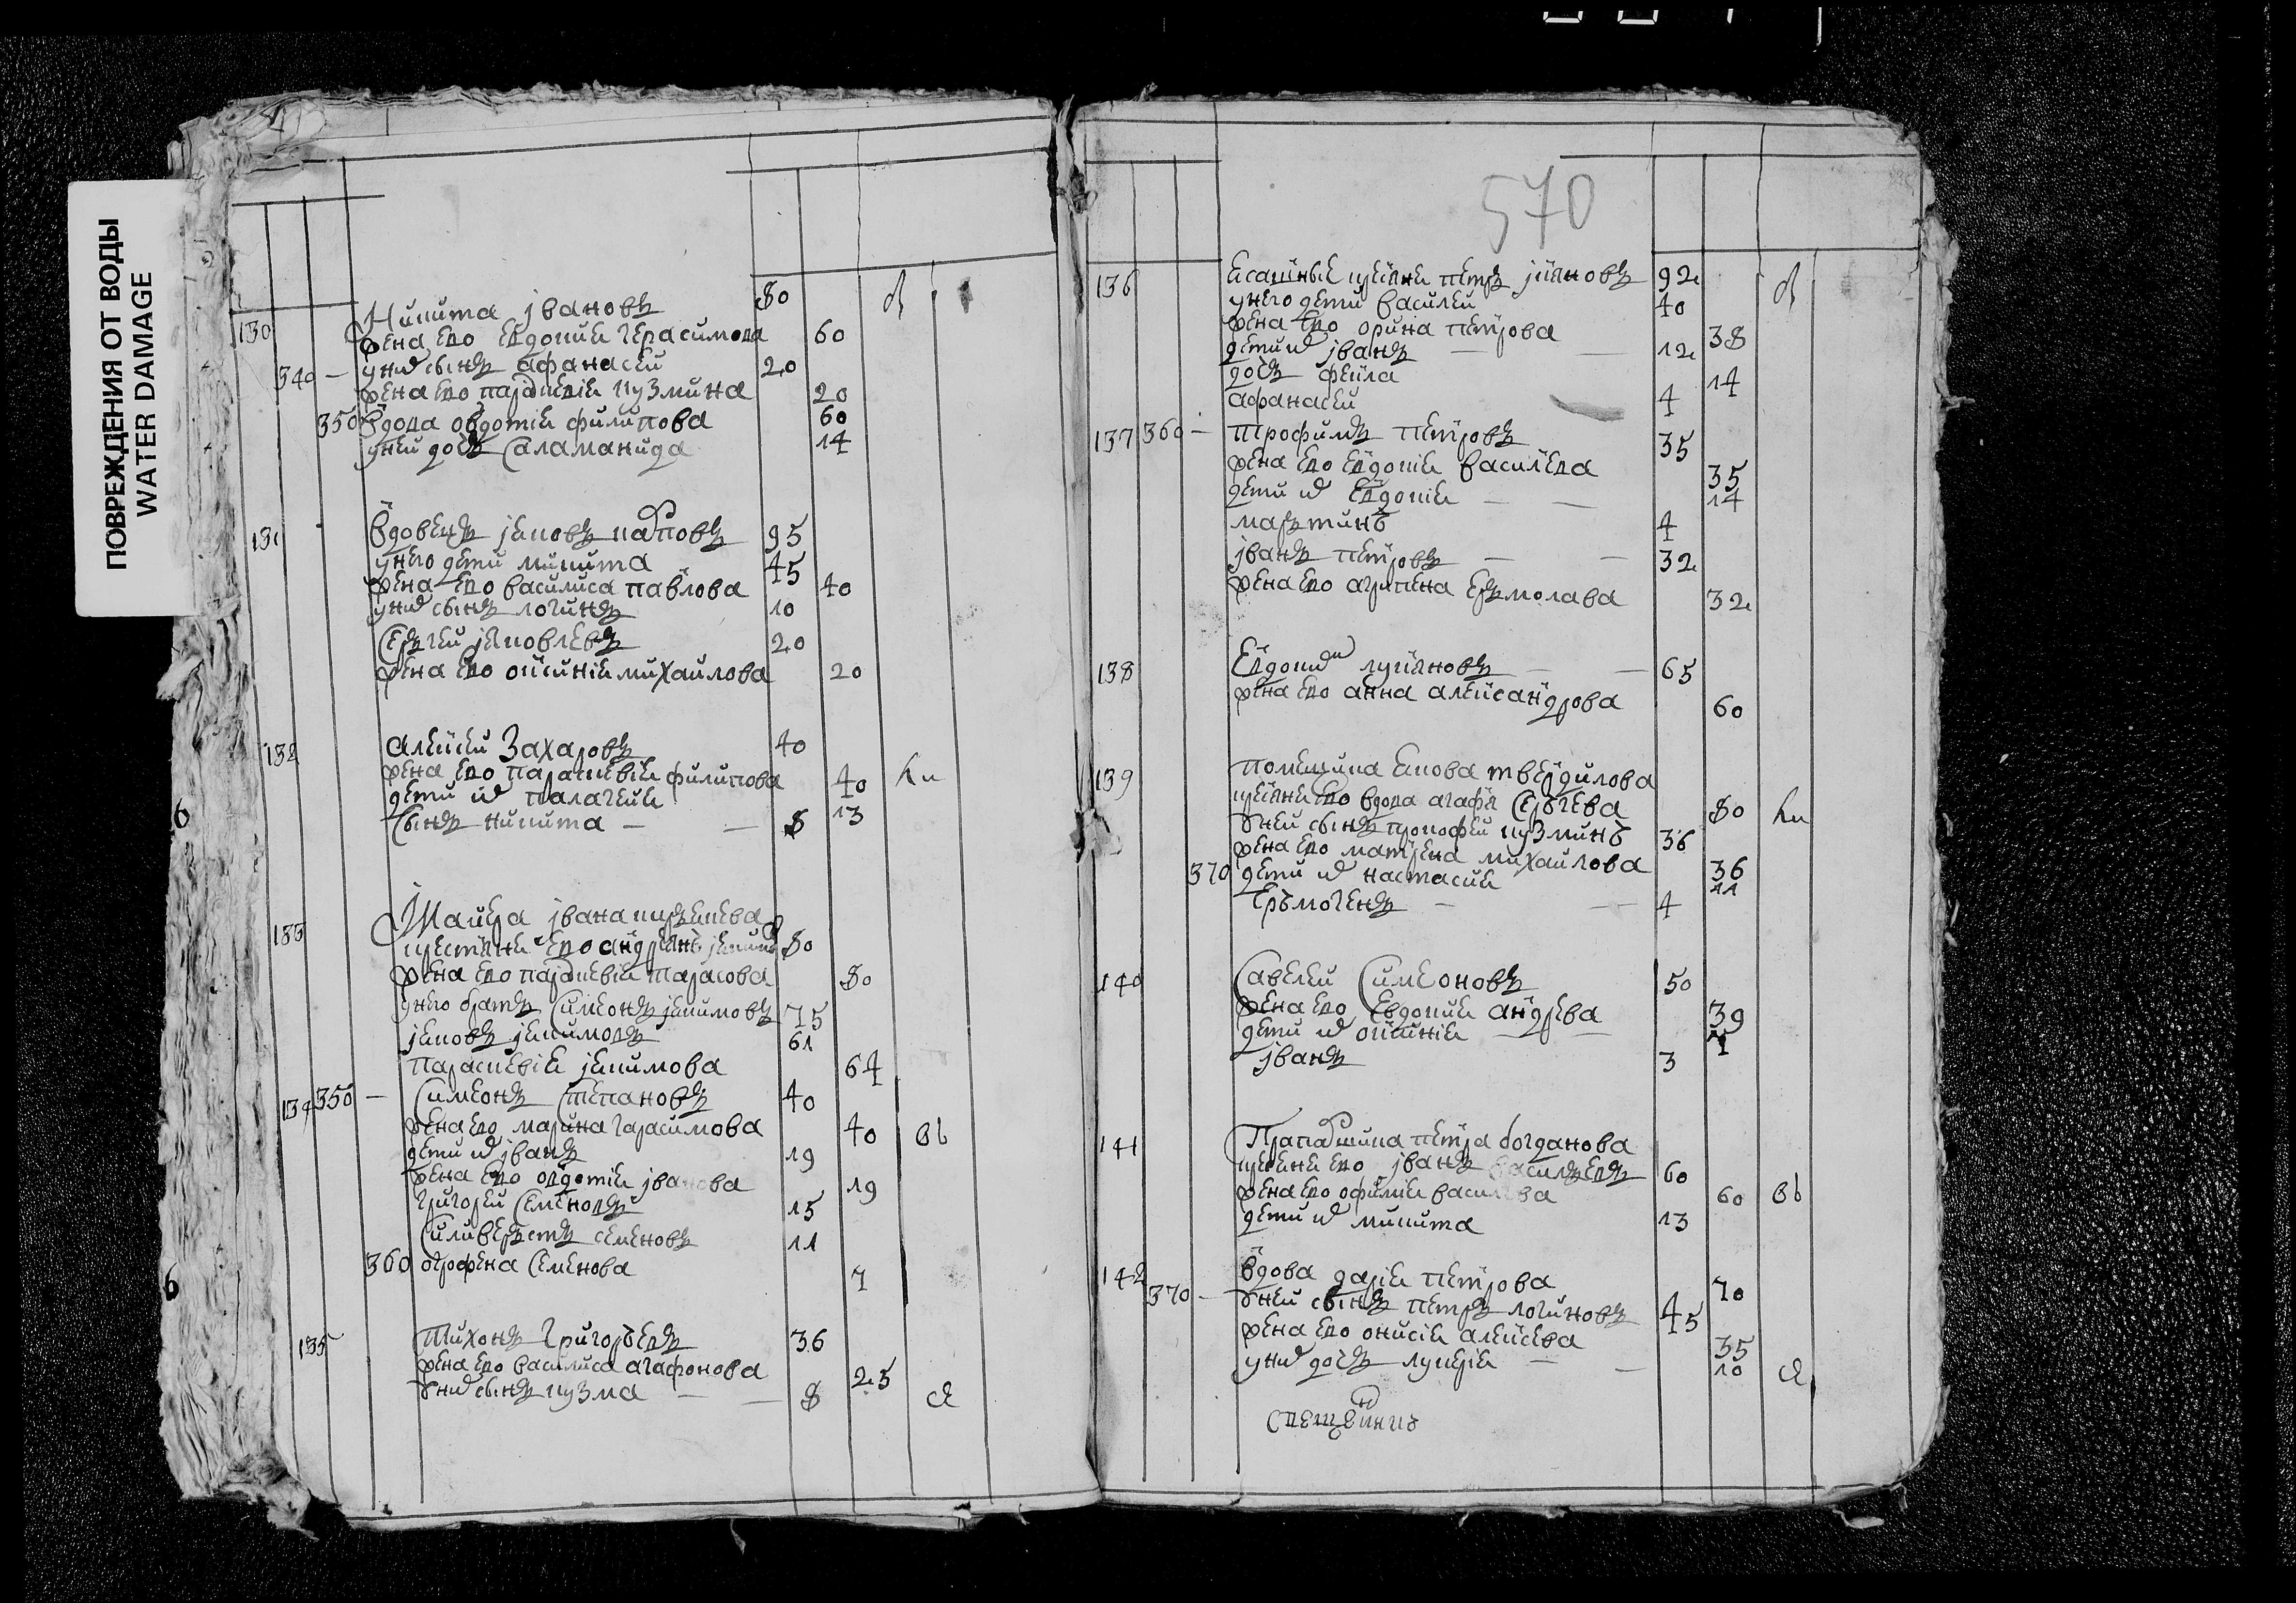 ПОВРЕЖДЕНИЯ ОТ ВОДЫ
WATER DAMAGE
130 Никита Ивановъ 80
жена ево Евдокия Герасимова 60
340 — у них сынъ Афанасеи 20
жена ево Парасковия Кузмина 20
350 Вдова Овдотия Филипова 60
у неи дочь Саламанида 14
131 Вдовецъ Яковъ 95
у него дети Микита 45
жена ево Василиса Павлова 40
у них сынъ Логинъ 10
Сергеи Яковлевъ 20
жена ево Оксиния Михаилова 20
132 Алексеи Захаровъ 40
жена ево Парасковия Филипова 40
дети их Палагея 13
Сынъ Никита — — 8
133 Маиера Ивана
крестяне ево Андреянъ 80
жена ево Парасковия Тарасова 80
у него братъ Симеонъ Якимовъ 75
Яковъ Якимовъ 61
Парасковия Якимова 64
134 350 — Симеонъ Степановъ 40
жена ево Марина Гарасимова 40
дети их Иванъ 19
жена ево Овдотия Иванова 19
Григореи Семеновъ 15
Силиверстъ Семеновъ 11
360 Огрофена Семенова 7
135 Тихонъ Григорьевъ 36
жена ево Василиса Агафонова 25
у них сынъ Кузма — — 8
570
136 крестяне Петръ 92
у него дети Василеи 40
жена ево Орина Петрова 38
дети их Иванъ — — 12
дочь Фекла 14
Афанасеи 4
137 360 — Трофимъ Петровъ 35
жена ево Евдокия Василева 35
дети их Евдокия — — 14
Мартинъ 4
Иванъ Петровъ — — 32
жена ево Агрипена Ермолава 32
138 Евдоким Лукяновъ — — 65
жена ево Анна Александрова 60
139 Помещика Якова Твердилова
крестяне ево вдова Агафя Сергева 80
у неи сынъ Прокофеи Кузминъ 36
жена ево Матрена Михаилова 36
370 дети их Настасия 11
Ермогенъ — — 4
140 Савелеи Симеоновъ 50
жена ево Евдокия Андрева 39
дети их Оксиния — —
Иванъ 3
141 Петра Богданова
крестяне ево Иванъ Васильевъ 60
жена ево Офимия Василева 60
дети их Микита 13
142 Вдова Дария Петрова 70
370 — у неи сынъ Петръ Логиновъ 45
жена ево Онисия Алексева 35
у них дочь Лукерия — — 10